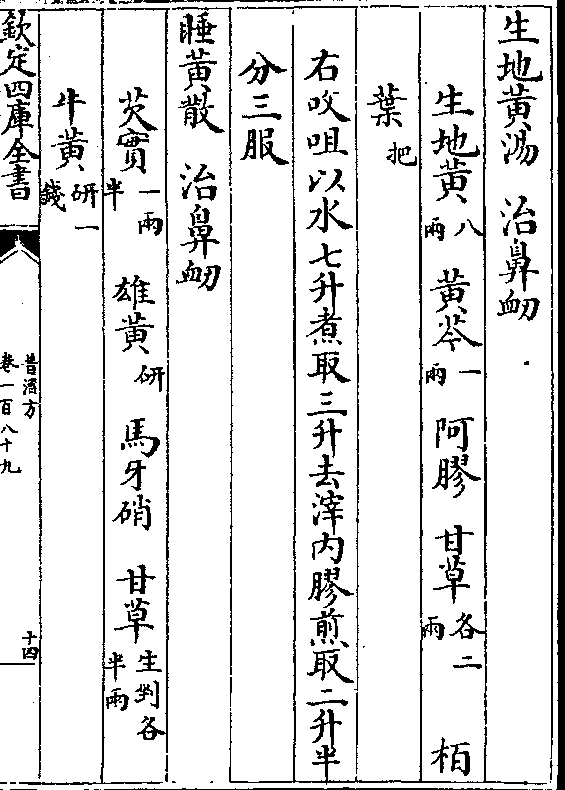 生地黄湯　治鼻衂
生地黄八兩　黄芩一兩　阿膠　甘草各二兩　柏
葉把
右㕮咀以水七升煮取三升去滓内膠煎取二升半
分三服
睡黄散　治鼻衂
芡實一兩半　雄黄研　馬牙硝　甘草生剉各半兩
牛黄研一錢
欽定四庫全書
普濟方
卷一百八十九
十四